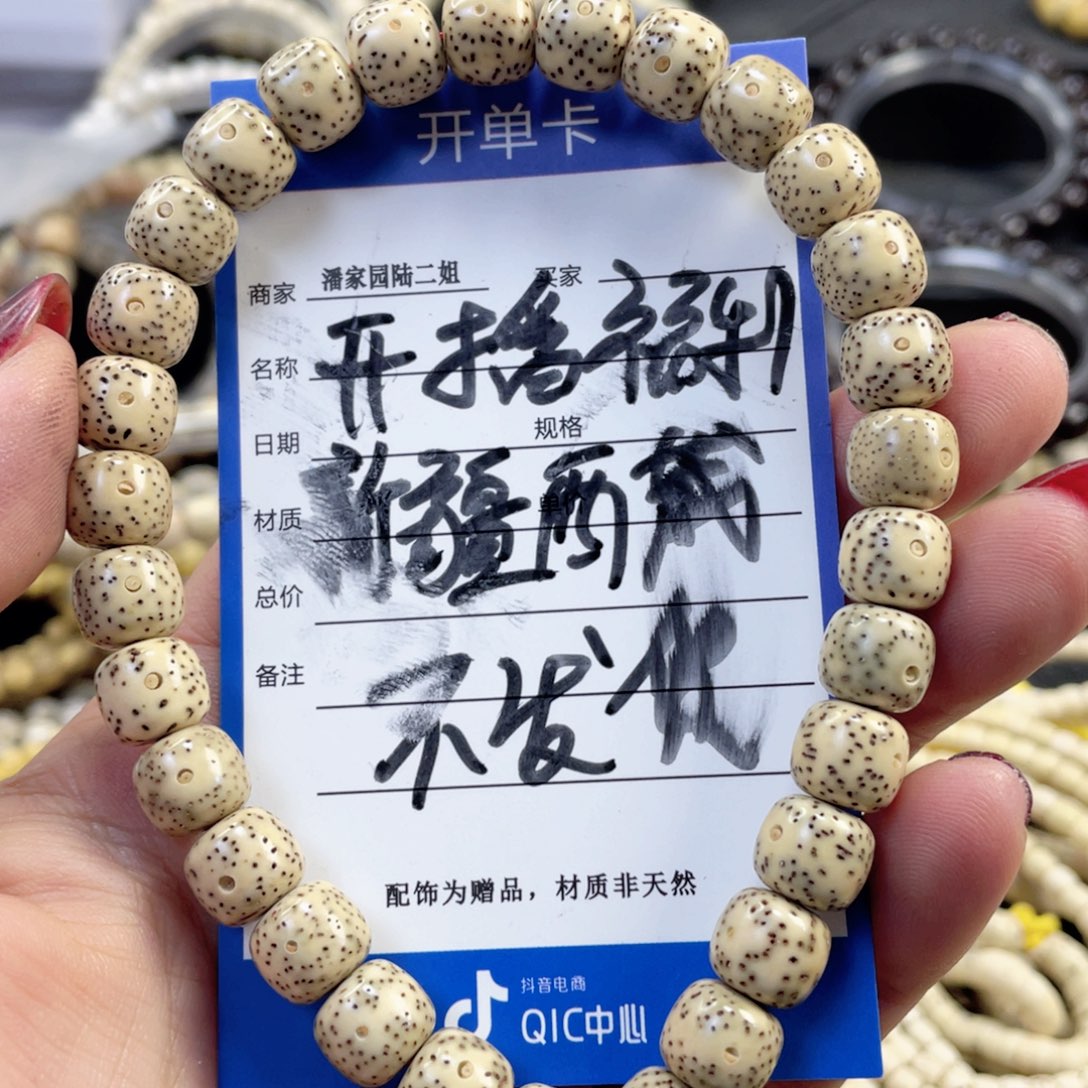 开单卡
商家 潘家园陆二姐 买家
名称 开播福利
日期 规格
材质 新疆西藏 单价
总价
备注
不发货
配饰为赠品，材质非天然
抖音电商
QIC中心